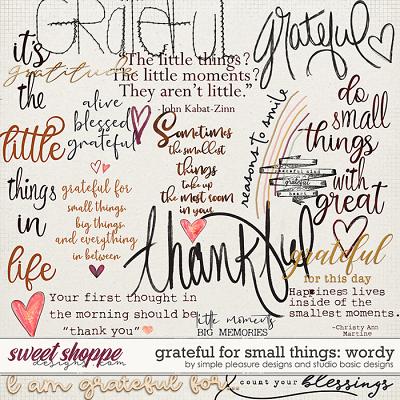 grateful
grateful
it's
gratitude
the
little
things
in
life
"The little things?
The little moments?
They aren't little."
-John Kabat-Zinn
alive
blessed
grateful
Sometimes
the smallest
things
take up
the most room
in your
reasons to smile
do
small
things
with
great
grateful for
small things,
big things
and everything
in between
thankful
grateful
for this day
Happiness lives
inside of the
smallest moments.
-Christy Ann
Martine
Your first thought in
the morning should be
"thank you"
little moments
BIG MEMORIES
sweet shoppe
designs.com
grateful for small things: wordy
by simple pleasure designs and studio basic designs
I am grateful for...
count your blessings